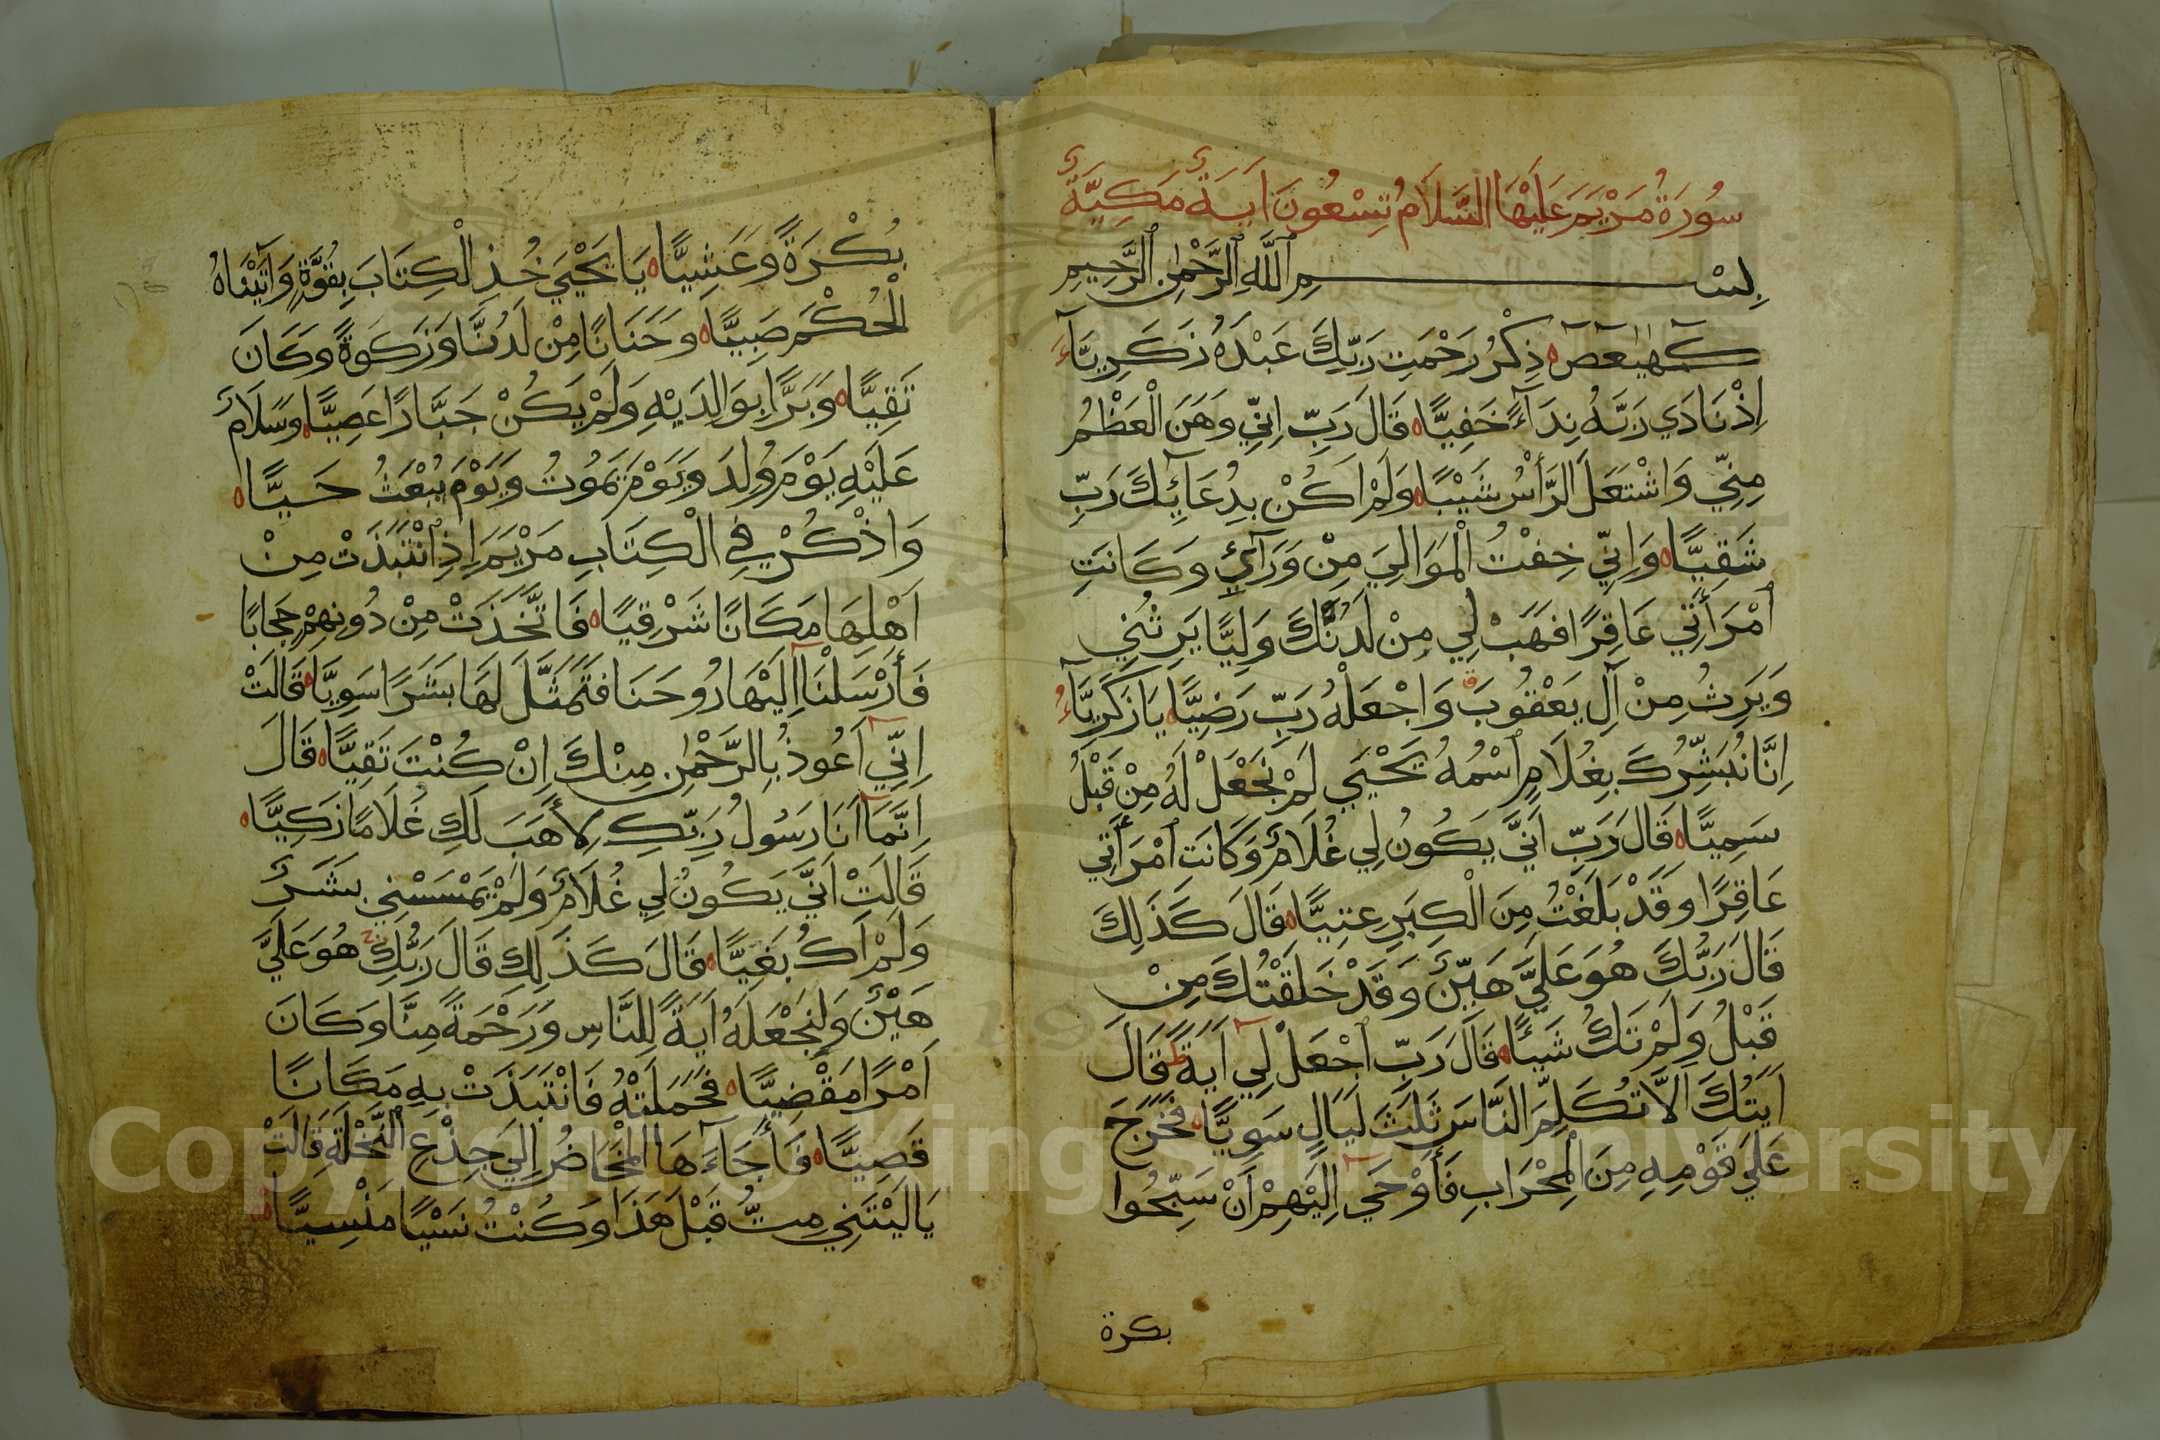 سُورَةُ مَرْيَمَ عَلَيْهَا السَّلَامُ تِسْعُونَ اَيَةً مَكِيَّةً
بِسْمِ ٱللَّهِ ٱلرَّحْمٰنِ ٱلرَّحِيمِ
كٓهٰيٰعٓصٓ ه ذِكْرُ رَحْمَتِ رَبِّكَ عَبْدَهُ زَكَرِيَّآءَ
اِذْ نَادَي رَبَّهُ نِدَآءً خَفِيًّا ه قَالَ رَبِّ اِنِّي وَهَنَ الْعَظْمُ
مِنِّي وَاشْتَعَلَ الرَّأْسُ شَيْبًا ه وَلَمْ اَكُنْ بِدُعَآئِكَ رَبِّ
شَقِيًّا ه وَاِنِّي خِفْتُ الْمَوَالِيَ مِنْ وَرَآئِي وَكَانَتِ
ٱمْرَأَتِي عَاقِرًا فَهَبْ لِي مِنْ لَدُنْكَ وَلِيًّا يَرِثُنِي
وَيَرِثُ مِنْ آلِ يَعْقُوبَ ق وَاجْعَلْهُ رَبِّ رَضِيًّا ه يَا زَكَرِيَّآءُ
اِنَّا نُبَشِّرُكَ بِغُلَامٍ ٱسْمُهُ يَحْيَي لَمْ نَجْعَلْ لَهُ مِنْ قَبْلُ
سَمِيًّا ه قَالَ رَبِّ اَنَّي يَكُونُ لِي غُلَامٌ وَكَانَتِ ٱمْرَأَتِي
عَاقِرًا وَقَدْ بَلَغْتُ مِنَ الْكِبَرِ عِتِيًّا ه قَالَ كَذَلِكَ
قَالَ رَبُّكَ هُوَ عَلَيَّ هَيِّنٌ وَقَدْ خَلَقْتُكَ مِنْ
قَبْلُ وَلَمْ تَكُ شَيْئًا ه قَالَ رَبِّ ٱجْعَلْ لِي اَيَةً ط قَالَ
اَيَتُكَ اَلَّا تُكَلِّمَ النَّاسَ ثَلَثَ لَيَالٍ سَوِيًّا ه فَخَرَجَ
عَلَي قَوْمِهِ مِنَ الْمِحْرَابِ فَأَوْحَي اِلَيْهِمْ اَنْ سَبِّحُوا
بكرة
بُكْرَةً وَعَشِيًّا ه يَا يَحْيَي خُذِ الْكِتَابَ بِقُوَّةٍ وَاَتَيْنَاهُ
الْحُكْمَ صَبِيًّا ه وَحَنَانًا مِنْ لَدُنَّا وَزَكَوةً وَكَانَ
تَقِيًّا ه وَبَرًّا بِوَالِدَيْهِ وَلَمْ يَكُنْ جَبَّارًا عَصِيًّا ه وَسَلَامٌ
عَلَيْهِ يَوْمَ وُلِدَ وَيَوْمَ يَمُوتُ وَيَوْمَ يُبْعَثُ حَيًّا ه
وَاذْكُرْ فِي الْكِتَابِ مَرْيَمَ اِذِ ٱنْتَبَذَتْ مِنْ
اَهْلِهَا مَكَانًا شَرْقِيًا ه فَاتَّخَذَتْ مِنْ دُونِهِمْ حِجَابًا
فَأَرْسَلْنَا اِلَيْهَا رُوحَنَا فَتَمَثَّلَ لَهَا بَشَرًا سَوِيًّا ه قَالَتْ
اِنِّي اَعُوذُ بِالرَّحْمٰنِ مِنْكَ اِنْ كُنْتَ تَقِيًّا ه قَالَ
اِنَّمَا اَنَا رَسُولُ رَبِّكِ لِأَهَبَ لَكِ غُلَامًا زَكِيًّا ه
قَالَتْ اَنَّي يَكُونُ لِي غُلَامٌ وَلَمْ يَمْسَسْنِي بَشَرٌ
وَلَمْ اَكُ بَغِيًّا ه قَالَ كَذَلِكِ قَالَ رَبُّكِ هُوَ عَلَيَّ
هَيِّنٌ وَلِنَجْعَلَهُ اَيَةً لِلنَّاسِ وَرَحْمَةً مِنَّا وَكَانَ
اَمْرًا مَقْضِيًّا ه فَحَمَلَتْهُ فَانْتَبَذَتْ بِهِ مَكَانًا
قَصِيًّا ه فَأَجَآءَهَا الْمَخَاضُ اِلَي جِذْعِ النَّخْلَةِ قَالَتْ
يَا لَيْتَنِي مِتُّ قَبْلَ هَذَا وَكُنْتُ نَسْيًا مَنْسِيًّا
Copyright © King Saud University